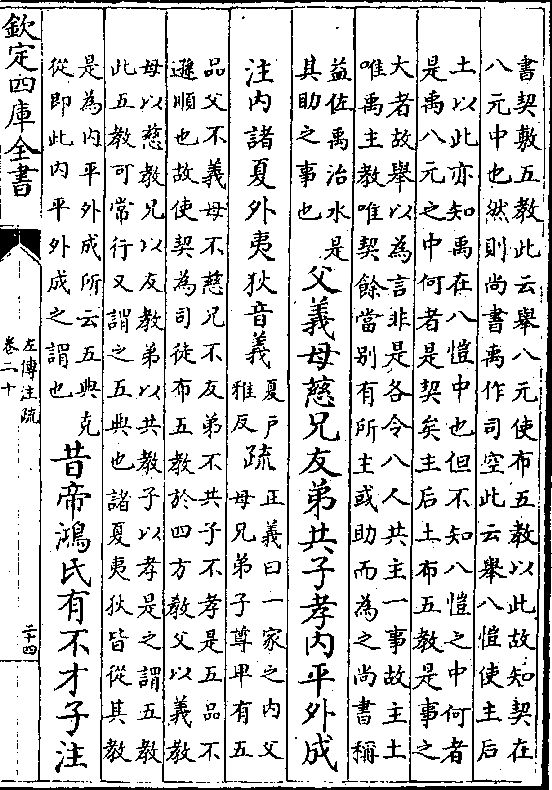 書契敷五教此云舉八元使布五教以此故知契在
八元中也然則尚書禹作司空此云舉八愷使主后
土以此亦知禹在八愷中也但不知八愷之中何者
是禹八元之中何者是契矣主后土布五教是事之
大者故舉以為言非是各令八人共主一事故主土
唯禹主教唯契餘當别有所主或助而為之尚書稱
益佐禹治水是
其助之事也
父義母慈兄友弟共子孝内平外成
注内諸夏外夷狄音義
夏户
雅反
疏
正義曰一家之内父
母兄弟子尊卑有五
品父不義母不慈兄不友弟不共子不孝是五品不
遜順也故使契為司徒布五教於四方教父以義教
母以慈教兄以友教弟以共教子以孝是之謂五教
此五教可常行又謂之五典也諸夏夷狄皆從其教
是為内平外成所云五典克
從即此内平外成之謂也
昔帝鴻氏有不才子注
欽定四庫全書
左傳注疏
卷二十
二十四